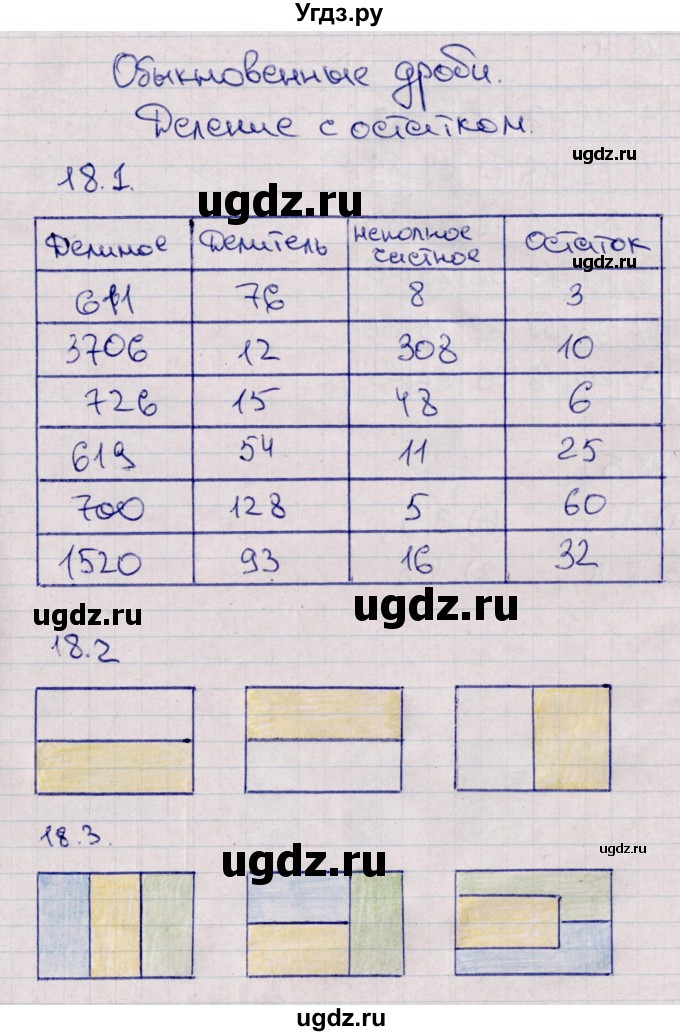 Угдз.ру
Обыкновенные дроби.
Деление с остатком.
ugdz.ru
18.1.
ugdz.ru
Делимое Делитель неполное частное Остаток
ugdz.ru
611 76 8 3
3706 12 308 10
726 15 48 6
619 54 11 25
700 128 5 60
1520 93 16 32
ugdz.ru
ugdz.ru
18.2
18.3.
ugdz.ru
ugdz.ru
ugdz.ru